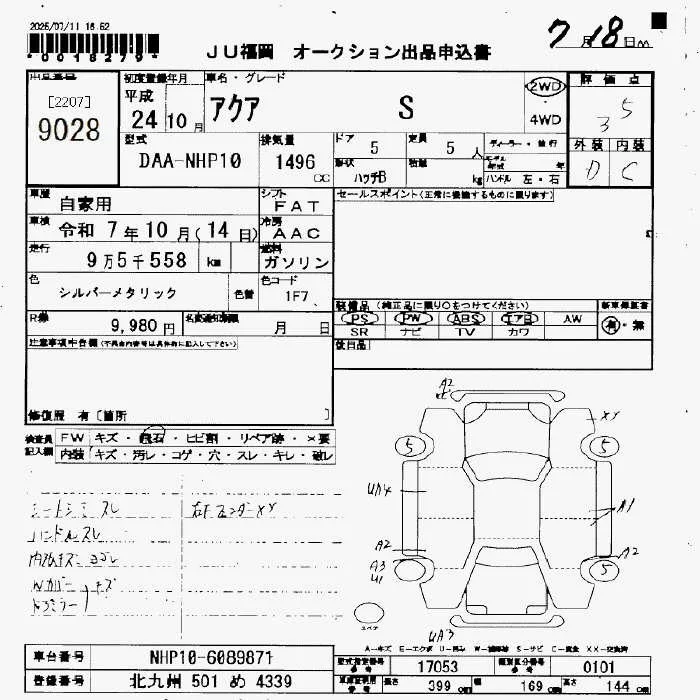 2025/07/11 16:52
*0018279*
JU福岡 オークション出品申込書
7月18日
出品番号
[2207]
9028
初度登録年月
平成
24 10 月
車名・グレード
アクア S
2WD
4WD
評価点
3 5
外装 内装
D C
型式
DAA-NHP10
排気量
1496 CC
ドア
5
定員
5 人
形状
ハッチB
積量
kg
ディーラー・並行
モデル年式 年
ハンドル 左・右
車歴
自家用
シフト
FAT
車検
令和 7 年 10 月(14 日)
冷房
AAC
走行
9万5千558 km
燃料
ガソリン
色
シルバーメタリック
色替
色コード
1F7
R券
9,980 円
名変通知期限
月 日
セールスポイント(正常に機能するものに限ります)
装備品 (純正品に限り○をつけてください)
PS PW ABS エアB AW
SR ナビ TV カワ
新車保証書
有・無
後日品
注意事項申告欄(不具合内容等は具体的に記入して下さい)
修復歴 有[箇所 ]
検査員記入欄
FW キズ・飛石・ヒビ割・リペア跡・X要
内装 キズ・汚レ・コゲ・穴・スレ・キレ・破レ
シートシミ スレ
ハンドルスレ
内張キズ ヨゴレ
Wカバー キズ
ドアミラー
右Fフェンダー XX
A2
XX
5
5
UA4
A1
A2
A2
A3
U1
5
スペア
UA3
A-キズ E-エクボ U-凹み W-補修跡 S-サビ C-腐食 XX-交換済
車台番号
NHP10-6089871
登録番号
北九州 501 め 4339
型式指定番号
17053
類別区分番号
0101
車庫証明
長さ 399 cm
幅 169 cm
高さ 144 cm